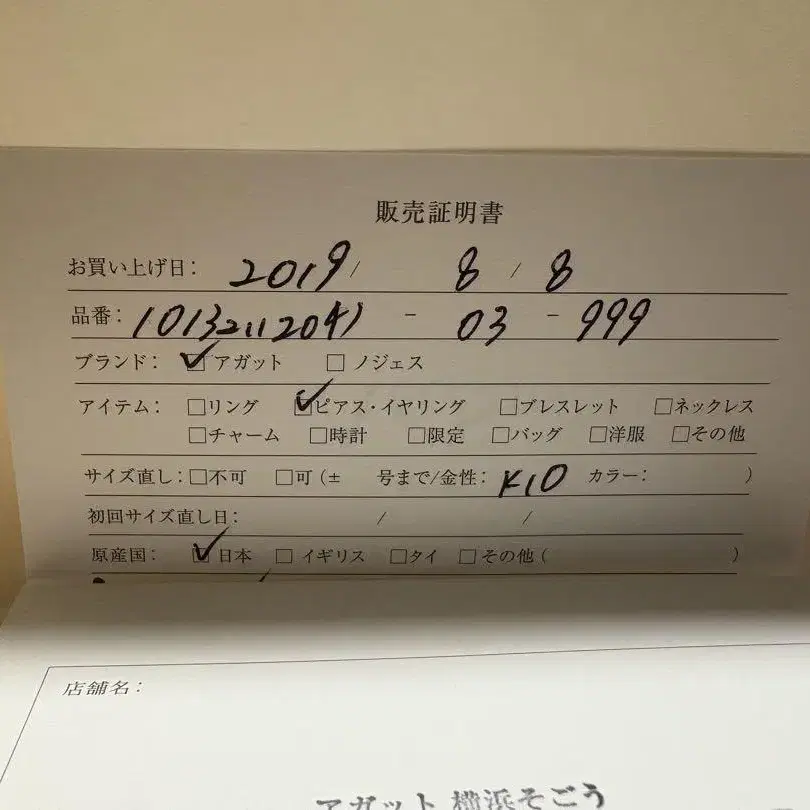 販売証明書
お買い上げ日: 2019 / 8 / 8
品番: 10132112041 - 03 - 999
ブランド: ☑アガット □ノジェス
アイテム: □リング ☑ピアス・イヤリング □ブレスレット □ネックレス
□チャーム □時計 □限定 □バッグ □洋服 □その他
サイズ直し: □不可 □可 (± 号まで/金性: K10 カラー: )
初回サイズ直し日: / /
原産国: ☑日本 □イギリス □タイ □その他 ( )
店舗名:
アガット 横浜そごう